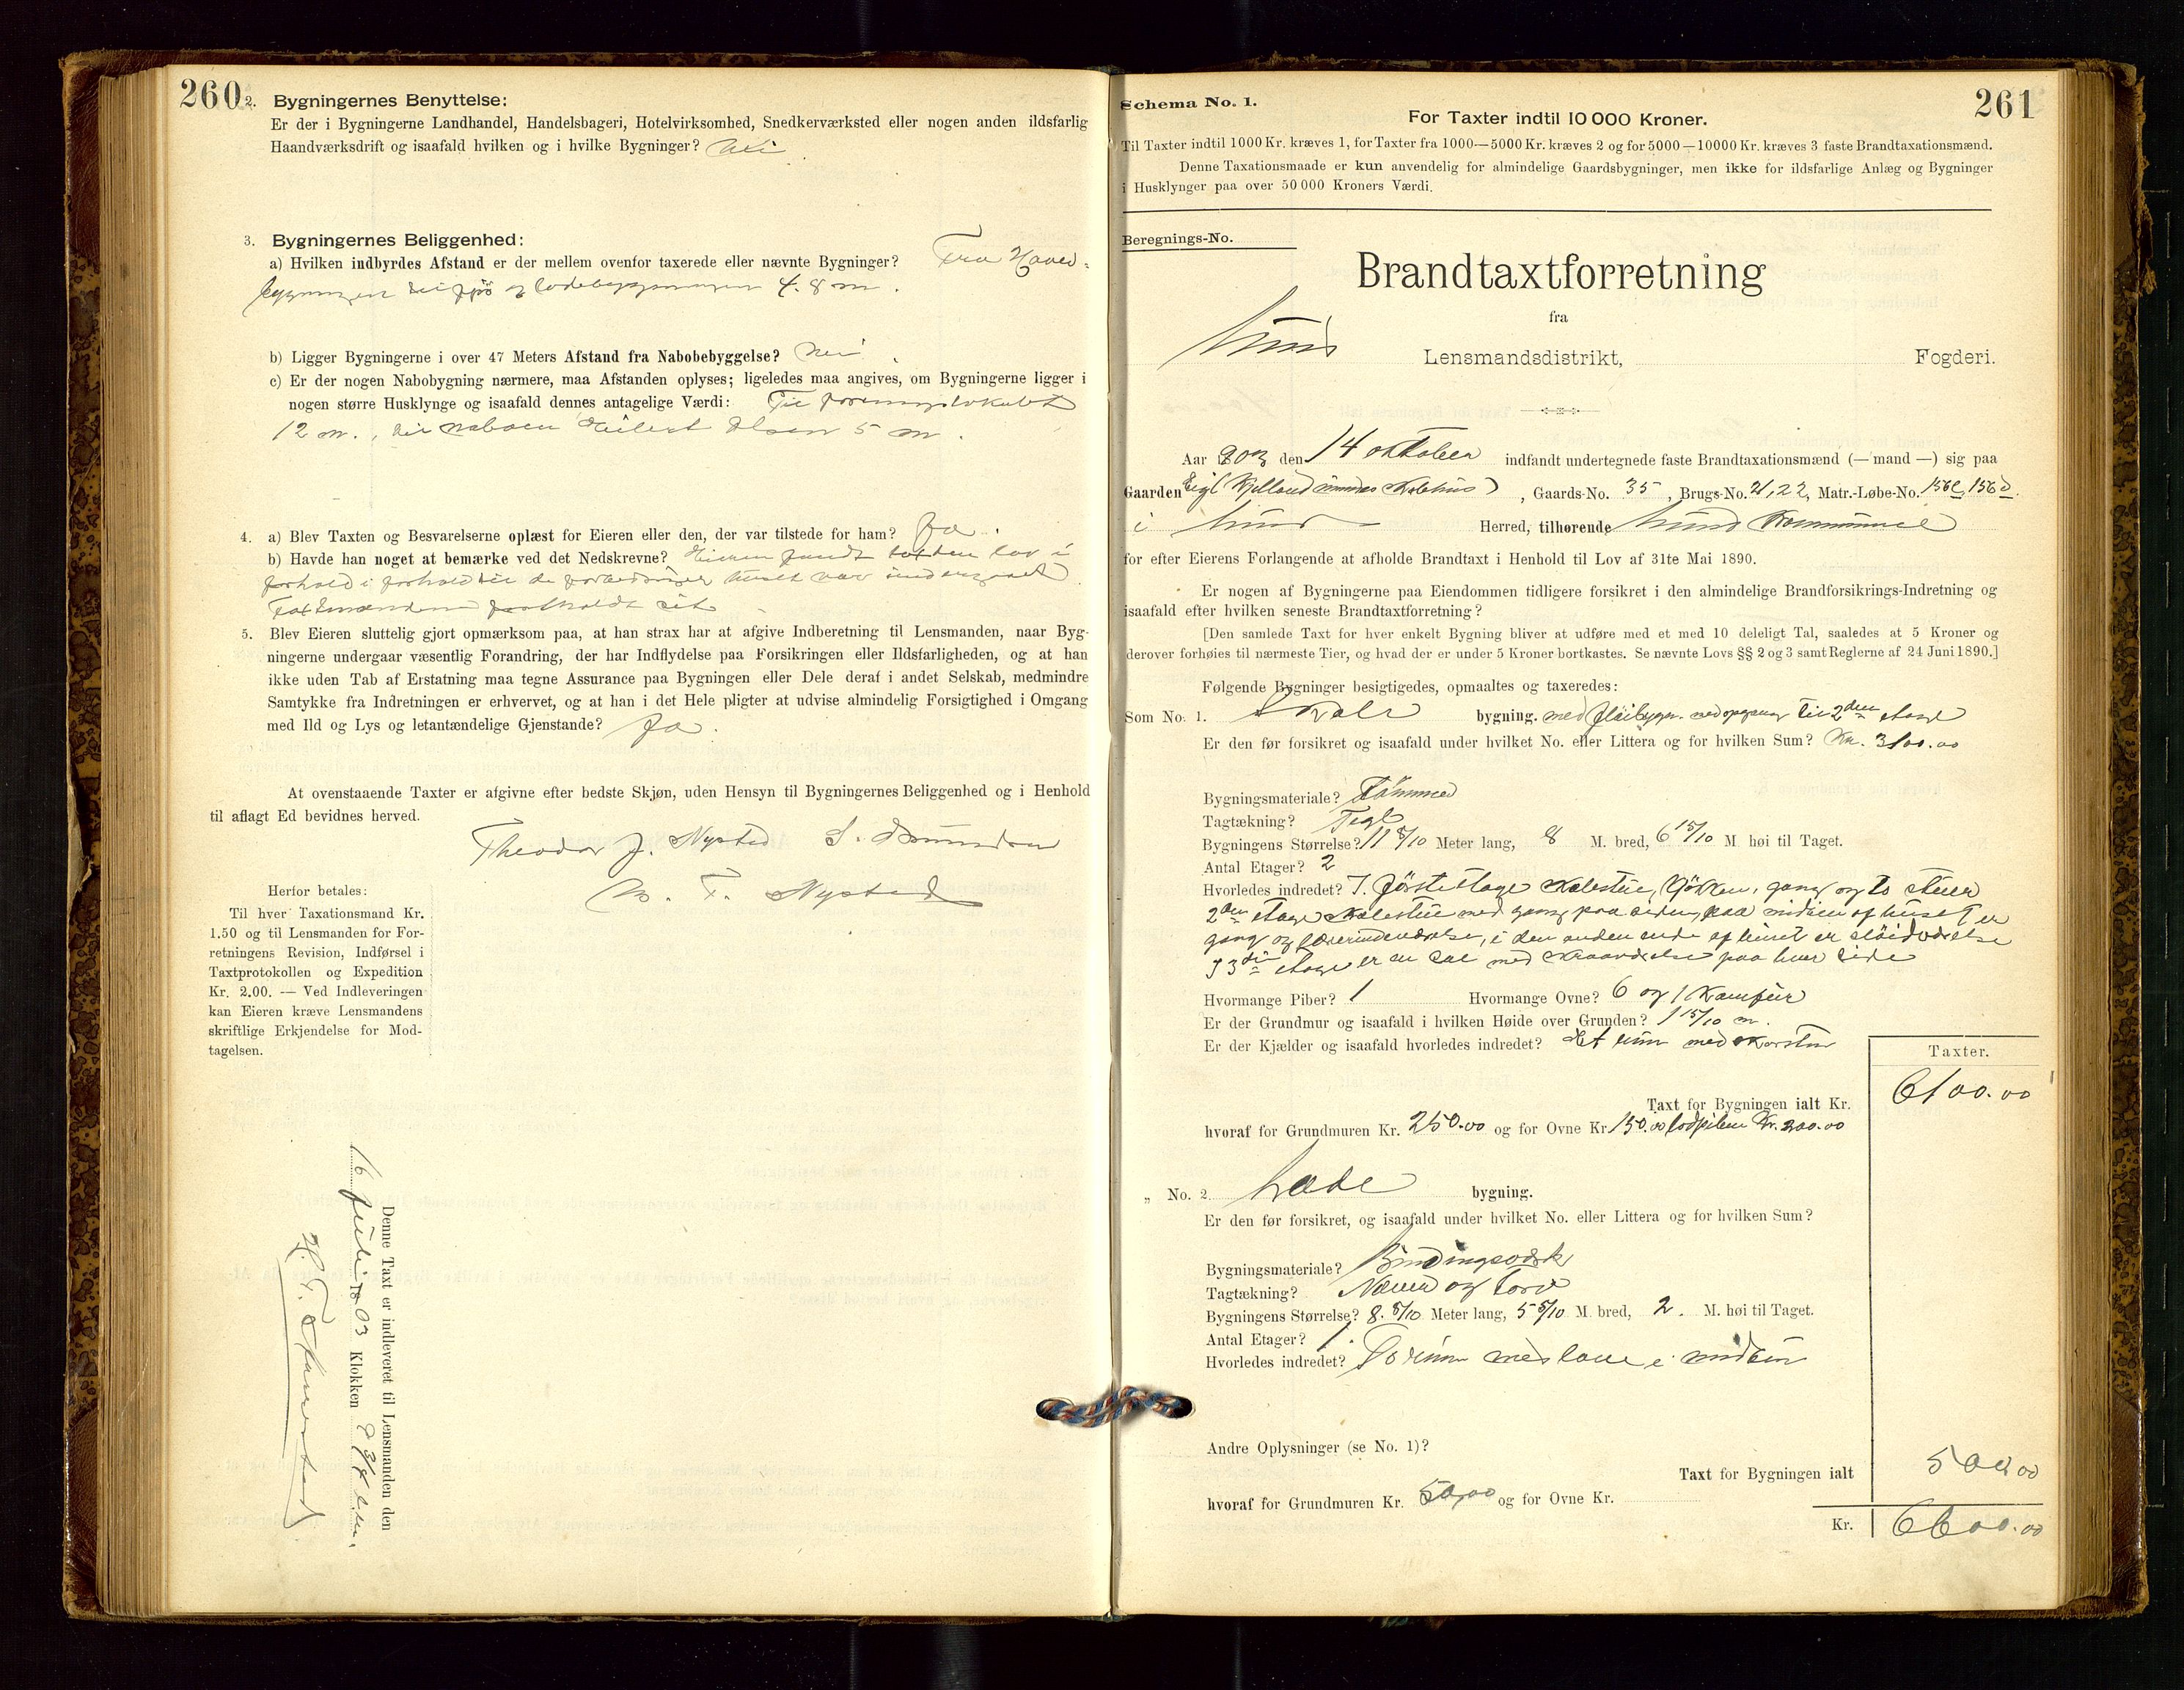 260
2. Bygningernes Benyttelse:
Er der i Bygningerne Landhandel, Handelsbageri, Hotelvirksomhed, Snedkerværksted eller nogen anden ildsfarlig
Haandværksdrift og isaafald hvilken og i hvilke Bygninger? Nei
3. Bygningernes Beliggenhed:
a) Hvilken indbyrdes Afstand er der mellem ovenfor taxerede eller nævnte Bygninger? Fra Hoved-
bygningen til fjös og ladebygningen 4.8 m.
b) Ligger Bygningerne i over 47 Meters Afstand fra Nabobebyggelse? Nei.
c) Er der nogen Nabobygning nærmere, maa Afstanden oplyses; ligeledes maa angives, om Bygningerne ligger i
nogen større Husklynge og isaafald dennes antagelige Værdi: Til foreningslokalet
12 m., til naboen Eilert Olsen 5 m.
4. a) Blev Taxten og Besvarelserne oplæst for Eieren eller den, der var tilstede for ham? Ja.
b) Havde han noget at bemærke ved det Nedskrevne? Eieren fandt taxten lav i
forhold i forhold til de forbedringer huset var undergaaet
Taxtmændene fastholdt sit
5. Blev Eieren sluttelig gjort opmærksom paa, at han strax har at afgive Indberetning til Lensmanden, naar Byg-
ningerne undergaar væsentlig Forandring, der har Indflydelse paa Forsikringen eller Ildsfarligheden, og at han
ikke uden Tab af Erstatning maa tegne Assurance paa Bygningen eller Dele deraf i andet Selskab, medmindre
Samtykke fra Indretningen er erhvervet, og at han i det Hele pligter at udvise almindelig Forsigtighed i Omgang
med Ild og Lys og letantændelige Gjenstande? Ja.
At ovenstaaende Taxter er afgivne efter bedste Skjøn, uden Hensyn til Bygningernes Beliggenhed og i Henhold
til aflagt Ed bevidnes herved.
Theodor J. Nysted S.
T. Nysted
Herfor betales:
Til hver Taxationsmand Kr.
1.50 og til Lensmanden for For-
retningens Revision, Indførsel i
Taxtprotokollen og Expedition
Kr. 2.00. — Ved Indleveringen
kan Eieren kræve Lensmandens
skriftlige Erkjendelse for Mod-
tagelsen.
Denne Taxt er indleveret til Lensmanden den
16 juli 1903 Klokken
261
Schema No. 1.
For Taxter indtil 10 000 Kroner.
Til Taxter indtil 1000 Kr. kræves 1, for Taxter fra 1000—5000 Kr. kræves 2 og for 5000—10000 Kr. kræves 3 faste Brandtaxationsmænd.
Denne Taxationsmaade er kun anvendelig for almindelige Gaardsbygninger, men ikke for ildsfarlige Anlæg og Bygninger
i Husklynger paa over 50 000 Kroners Værdi.
Beregnings-No.
Brandtaxtforretning
fra
Lund Lensmandsdistrikt, Fogderi.
Aar 1903 den 14 oktober indfandt undertegnede faste Brandtaxationsmænd (— mand —) sig paa
Gaarden Eigl , Gaards-No. 35, Brugs-No. 21,22, Matr.-Løbe-No. 156c, 156d.
i Lund Herred, tilhørende Lund Kommune
for efter Eierens Forlangende at afholde Brandtaxt i Henhold til Lov af 31te Mai 1890.
Er nogen af Bygningerne paa Eiendommen tidligere forsikret i den almindelige Brandforsikrings-Indretning og
isaafald efter hvilken seneste Brandtaxtforretning?
[Den samlede Taxt for hver enkelt Bygning bliver at udføre med et med 10 deleligt Tal, saaledes at 5 Kroner og
derover forhøies til nærmeste Tier, og hvad der er under 5 Kroner bortkastes. Se nævnte Lovs §§ 2 og 3 samt Reglerne af 24 Juni 1890.]
Følgende Bygninger besigtigedes, opmaaltes og taxeredes:
Som No. 1. Skole bygning. med fløibygn. med opgang til 2den etage
Er den før forsikret og isaafald under hvilket No. eller Littera og for hvilken Sum? Kr. 3100.00
Bygningsmateriale? Tömmer
Tagtækning? Tegl
Bygningens Størrelse? 11 5/10 Meter lang, 8 M. bred, 6 15/10 M. høi til Taget.
Antal Etager? 2
Hvorledes indredet? I förste Etage skolestue, kjökken, gang og to stuer
2den etage skolestue med gang paa siden, paa midten af huset er
gang og lærerindeværelse, i den anden ende af huset er slöidværelse
I 3die etage er en sal med skraaværelse paa hver side
Hvormange Piber? 1 Hvormange Ovne? 6 og 1 Komfur
Er der Grundmur og isaafald i hvilken Høide over Grunden? 1 15/10 m.
Er der Kjælder og isaafald hvorledes indredet? Et rum med skorsten
Taxter.
Taxt for Bygningen ialt Kr. 6100.00
hvoraf for Grundmuren Kr. 250.00 og for Ovne Kr. 150.00 lodpiben Kr. 200.00
„ No. 2. Lade bygning.
Er den før forsikret, og isaafald under hvilket No. eller Littera og for hvilken Sum?
Bygningsmateriale? Bindingsværk
Tagtækning? Næver og torv
Bygningens Størrelse? 8.5/10 Meter lang, 5 5/10 M. bred, 2. M. høi til Taget.
Antal Etager? 1.
Hvorledes indredet? To rum med lave i midten
Andre Oplysninger (se No. 1)?
Taxt for Bygningen ialt 500.00
hvoraf for Grundmuren Kr. 50,00 og for Ovne Kr.
Kr. 6600.00